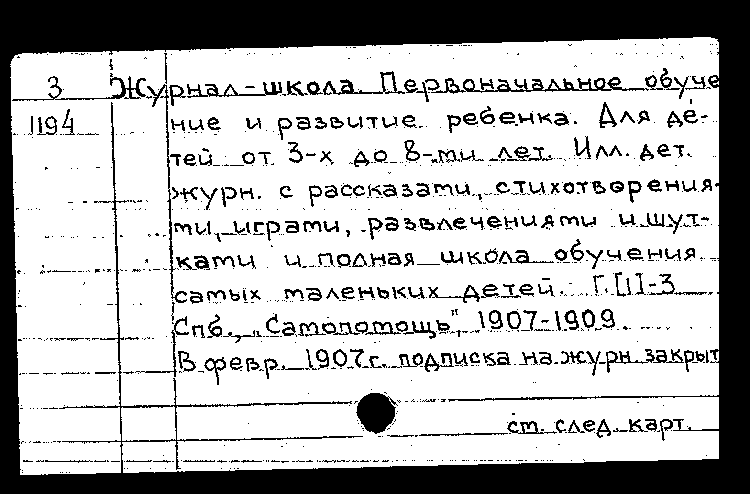 3 Журнал-школа. Первоначальное обуче
1194 ние и развитие ребенка. Для де-
тей от 3-х до 8-ми лет. Илл. дет.
журн. с рассказами, стихотворения-
ми, играми, развлечениями и шут-
ками и полная школа обучения
самых маленьких детей. Г.[1]-3
Спб., „Самопомощь", 1907-1909.
В февр. 1907г. подписка на журн. закрыт
см. след. карт.